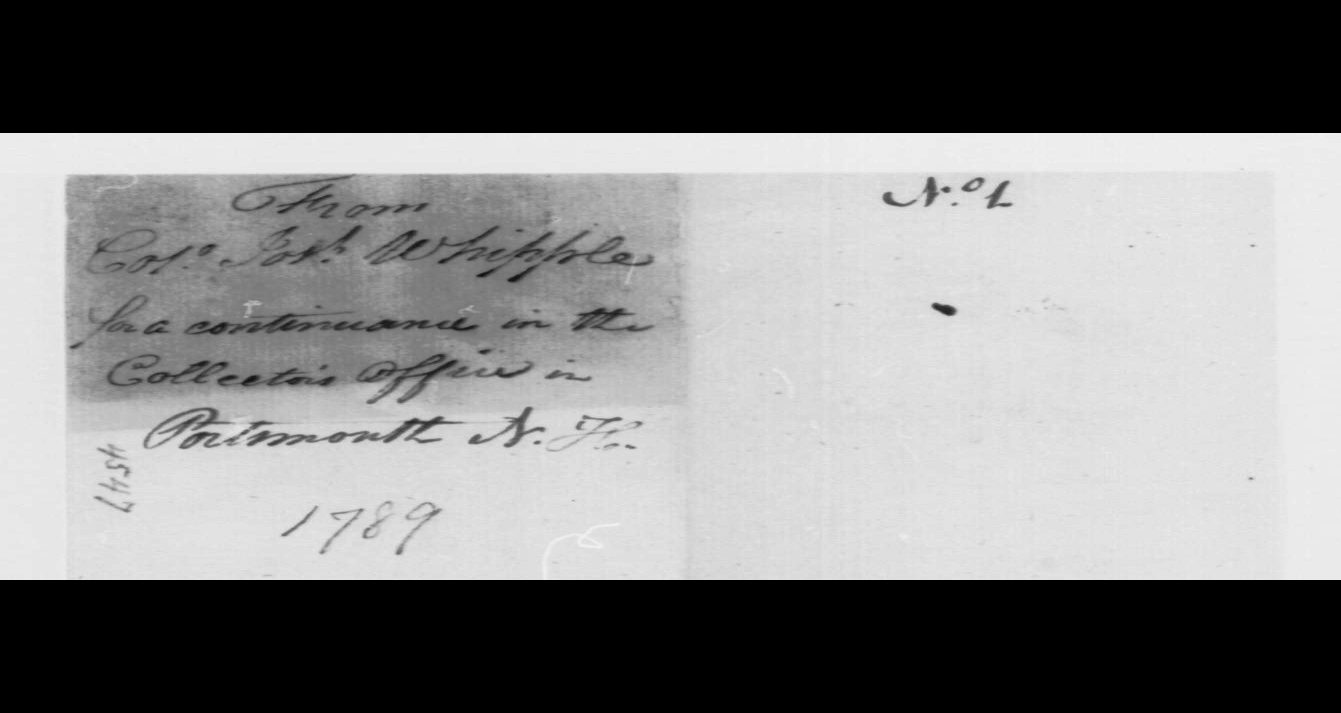 From
Col.o Jos.h Whipple
for a continuance in the
Collector's Office in
Portsmouth N. H.
1789
4547
N.o 1